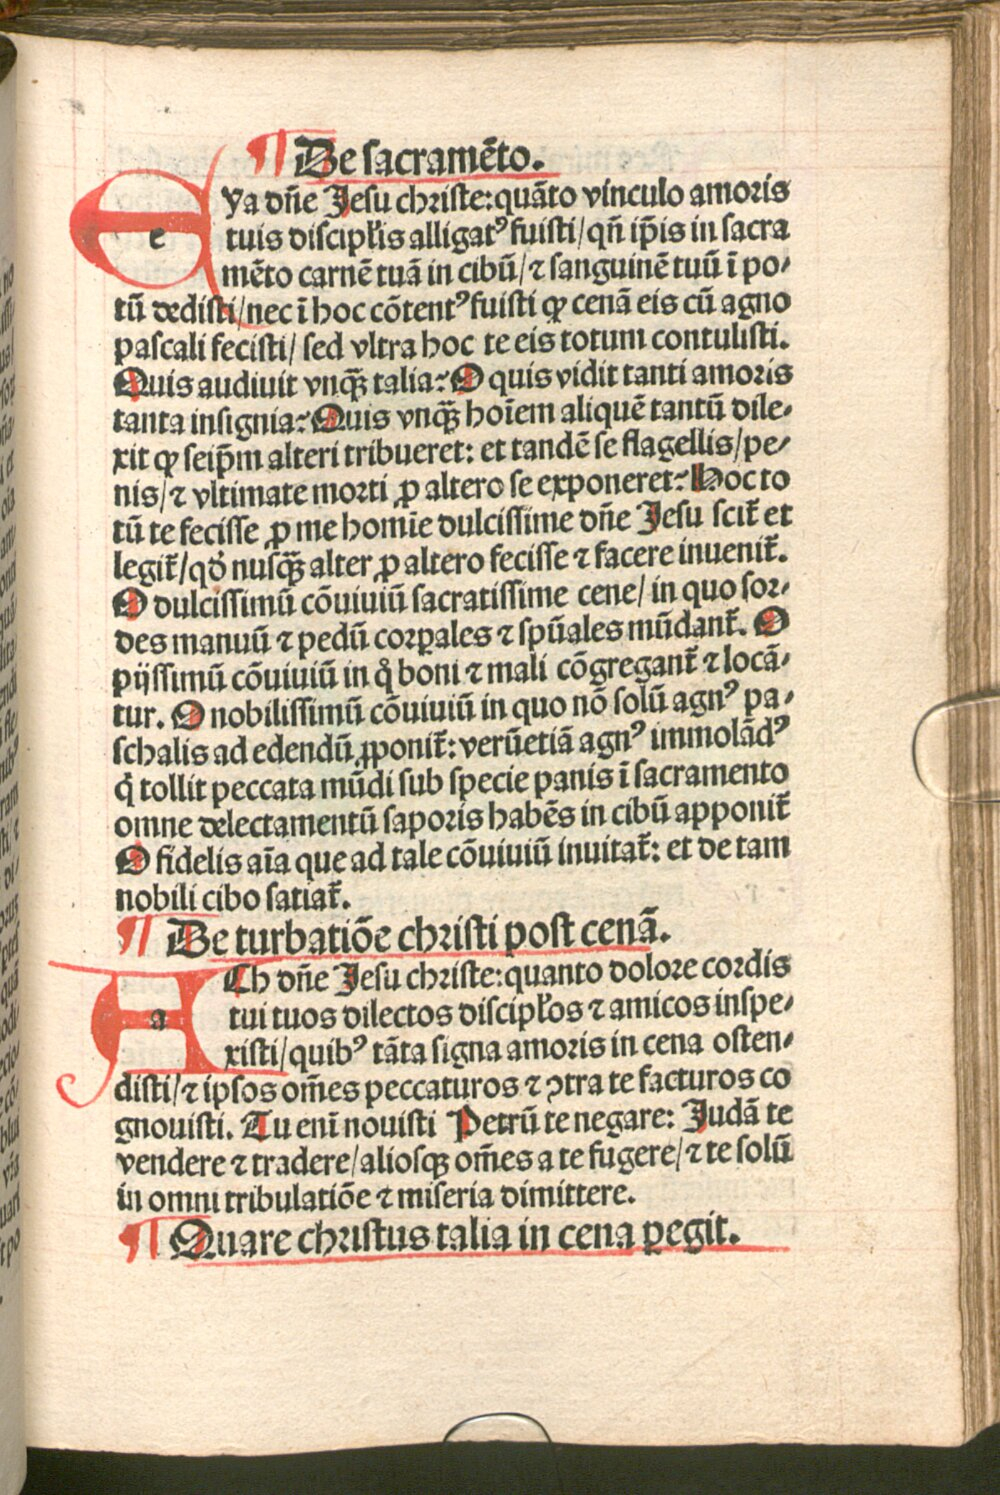 ¶ De sacramēto.
EYa dn̄e Jesu christe: quāto vinculo amoris
tuis discipłis alligatꝰ fuisti / qn̄ ip̄is in sacra
mēto carnē tuā in cibū / ⁊ sanguinē tuū ī po⸗
tū dedisti / nec ī hoc cōtentꝰ fuisti ꝙ cenā eis cū agno
pascali fecisti / sed vltra hoc te eis totum contulisti.
Quis audiuit vnꝗ̄ talia? O quis vidit tanti amoris
tanta insignia? Quis vnꝗ̄ hoīem aliquē tantū dile⸗
xit ꝙ seip̄m alteri tribueret: et tandē se flagellis / pe⸗
nis / ⁊ vltimate morti ꝓ altero se exponeret? Hoc to
tū te fecisse ꝓ me homīe dulcissime dn̄e Jesu scit᷑ et
legit᷑ / qd̓ nusꝗ̄ alter ꝓ altero fecisse ⁊ facere inuenit᷑.
O dulcissimū cōuiuiū sacratissime cene / in quo sor⸗
des manuū ⁊ pedū corꝑales ⁊ spūales mūdant᷑. O
pijssimū cōuiuiū in qͦ boni ⁊ mali cōgregant᷑ ⁊ locā⸗
tur. O nobilissimū cōuiuiū in quo nō solū agnꝰ pa⸗
schalis ad edendū ꝓponit᷑: verūetiā agnꝰ immolādꝰ
qͥ tollit peccata mūdi sub specie panis ī sacramento
omne delectamentū saporis habēs in cibū apponit᷑
O fidelis aīa que ad tale cōuiuiū inuitat᷑: et de tam
nobili cibo satiat᷑.
¶ De turbatiōe christi post cenā.
ACh dn̄e Jesu christe: quanto dolore cordis
tui tuos dilectos discipłos ⁊ amicos inspe⸗
xisti / quibꝰ tāta signa amoris in cena osten⸗
disti / ⁊ ipsos om̄es peccaturos ⁊ ꝯtra te facturos co
gnouisti. Tu enī nouisti Petrū te negare: Judā te
vendere ⁊ tradere / aliosꝗ om̄es a te fugere / ⁊ te solū
in omni tribulatiōe ⁊ miseria dimittere.
¶ Quare christus talia in cena ꝑegit.